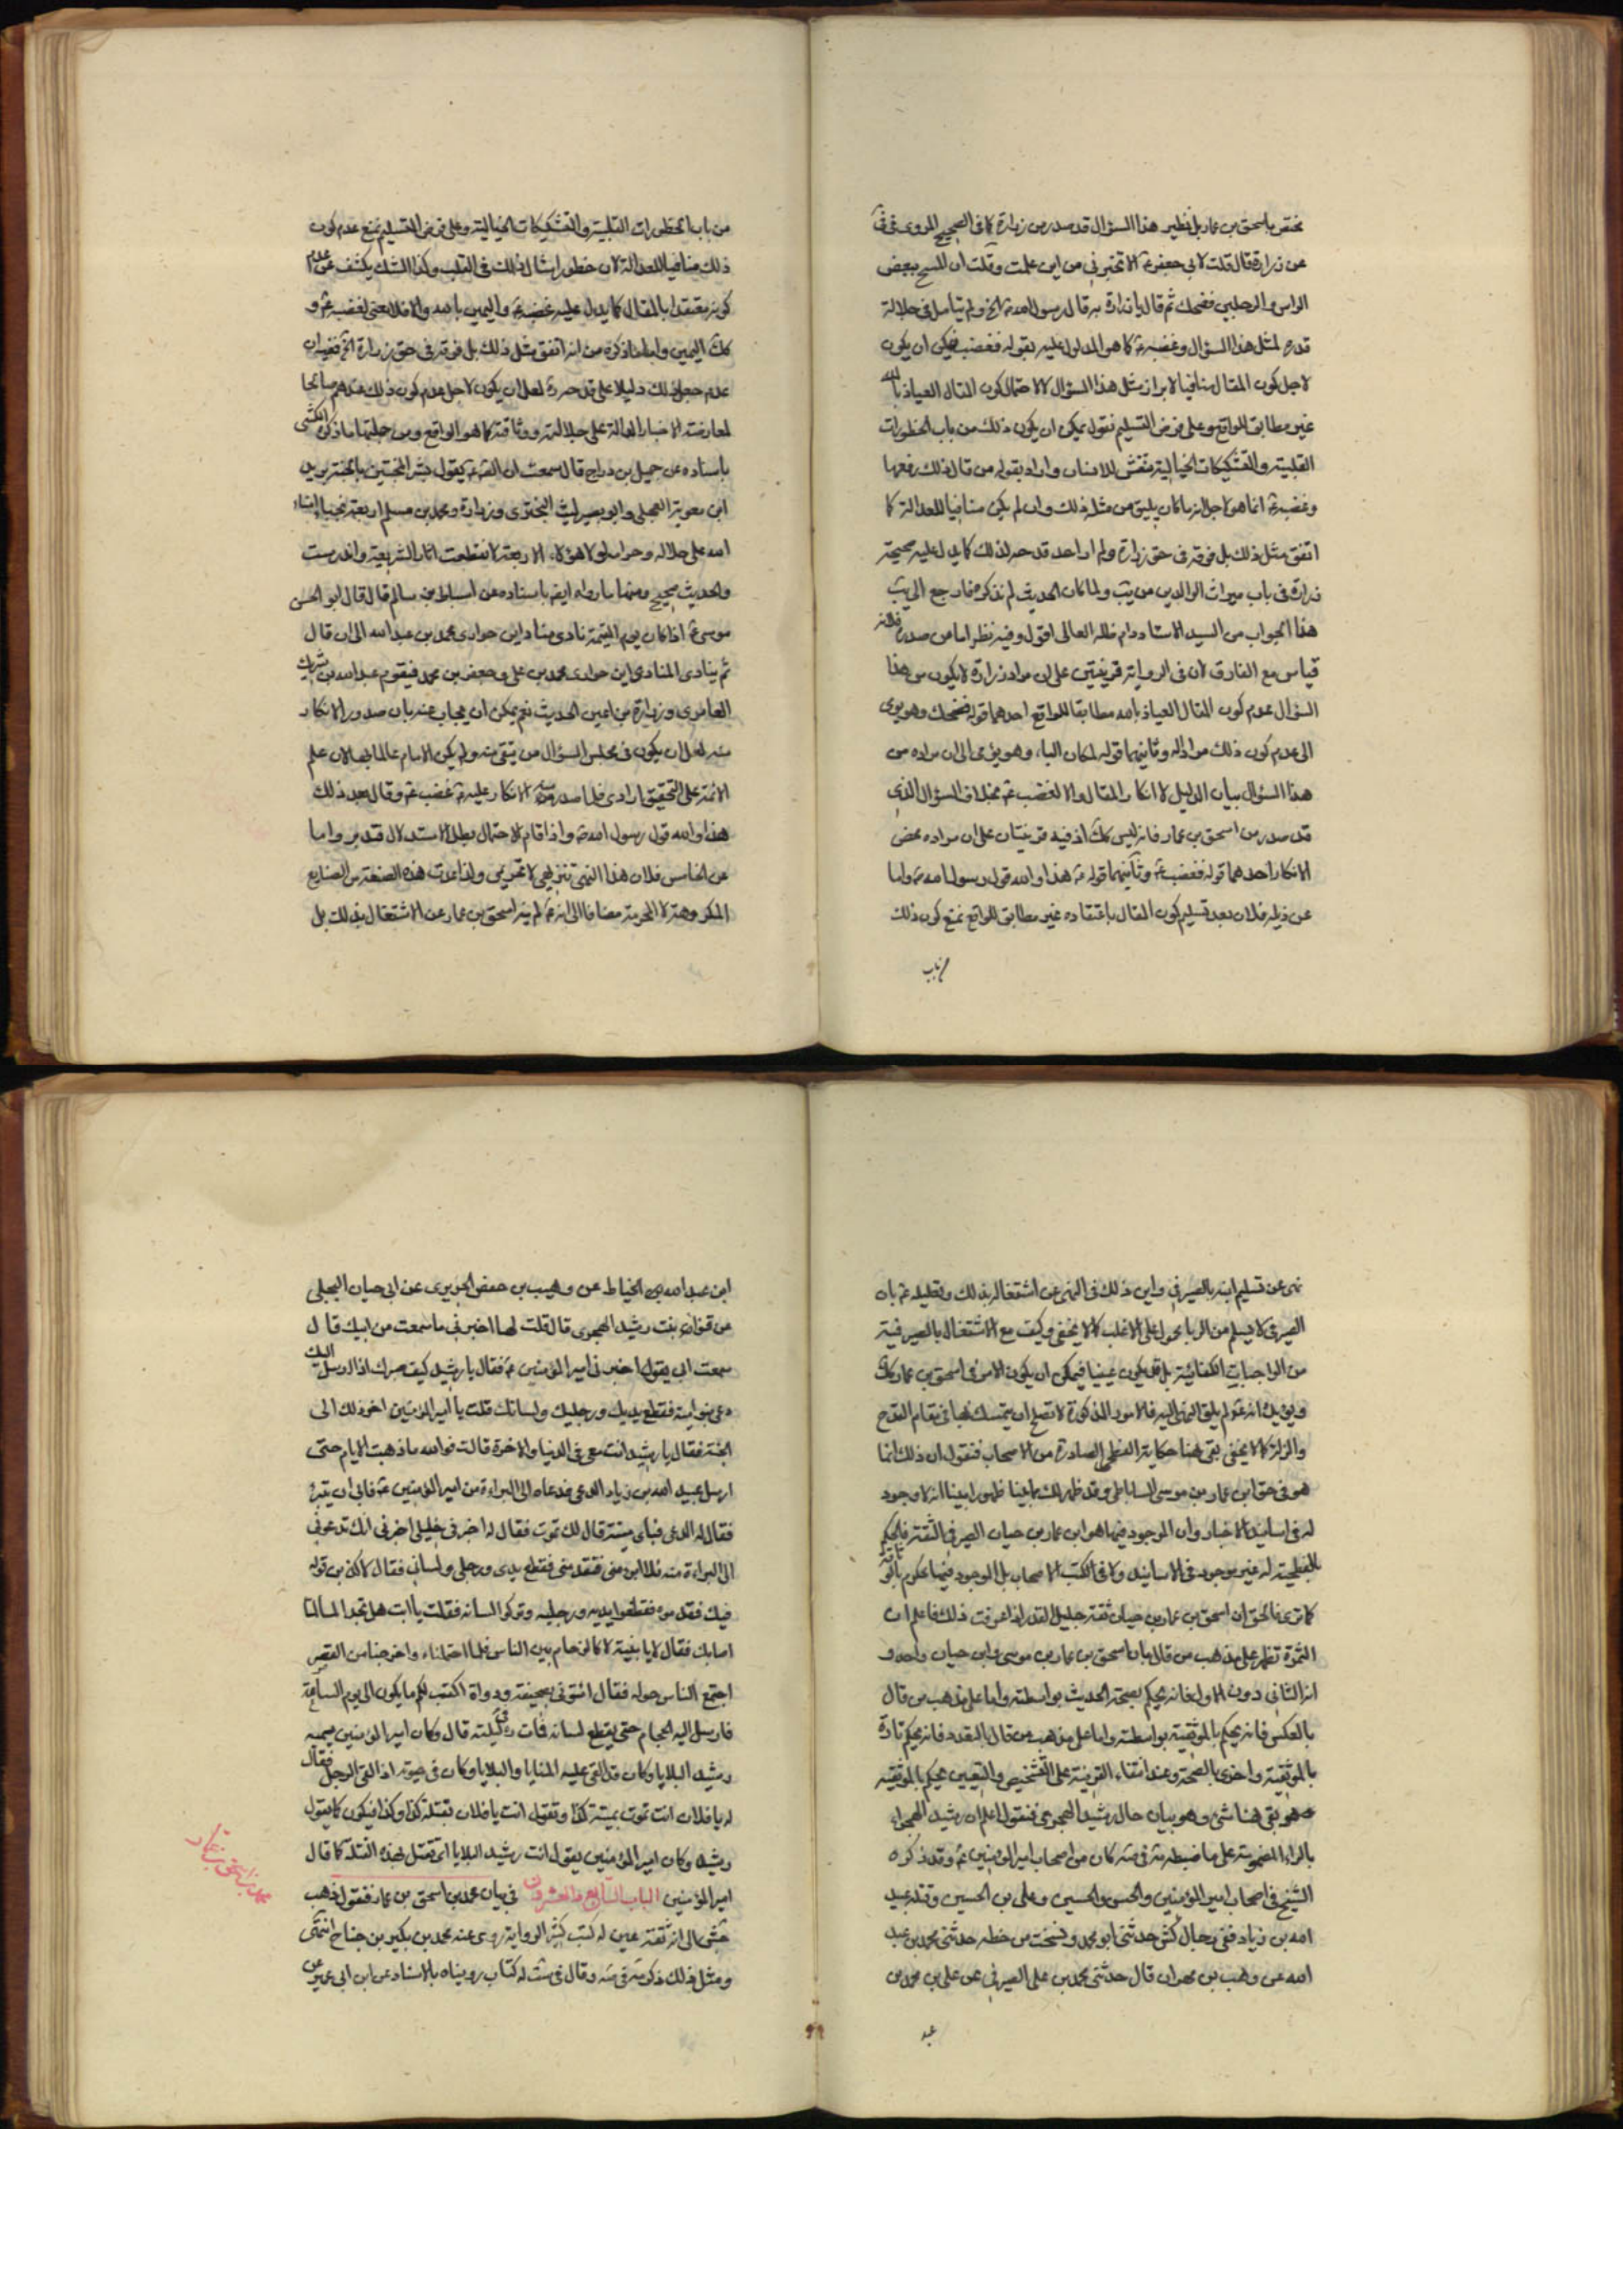 يختص باسحق بن عمار بل نظير هذا السؤال قد صدر من زرارة كما فى الصحيح المروى فى
عن زرارة قال قلت لابى جعفر ع الا تخبرنى من اين علمت وقلت ان المسح ببعض
الراس والرجلين فضحك ثم قال يا زرارة قال رسول الله ص الخ ولم يتأمل فى جلالة
قدره لمثل هذا السؤال وغضبه ع كما هو المدلول عليه بقوله فغضب فيمكن ان يكون
لاجل كون المقال منافيا لابراز مثل هذا السؤال لا لاحتمال كون المقال العياذ بالله
غير مطابق للواقع وعلى فرض التسليم نقول يمكن ان يكون ذلك من باب الخطورات
القلبية والتشكيكات الخيالية للانسان واراد بقوله من قال ذلك رفعها
وغضبه ع انما هو لاجل انه ما كان يليق من مثله ذلك وان لم يكن منافيا للعدالة كما
اتفق مثل ذلك بل فوقه فى حق زرارة ولم ار احد قدحه لذلك كما يدل عليه صحيحة
زرارة فى باب ميراث الوالدين من يب ولما كان الحديث لم نذكره فارجع الى يب
هذا الجواب من السيد الاستاد دام ظله العالى اقول وفيه نظر اما من صدره فلانه
قياس مع الفارق لان فى الرواية قرينتين على ان مراد زرارة لا يكون من هذا
السؤال عدم كون المقال العياذ بالله مطابقا للواقع احدهما قوله فضحك وهو يومى
الى عدم كون ذلك مرادا له وثانيهما قوله لمكان الباء وهو يومى الى ان مراده من
هذا السؤال بيان الدليل لا انكار المقال والا لغضب ع بخلاف السؤال الذى
قد صدر من اسحق بن عمار فانه ليس كك اذ فيه قرينتان على ان مراده محض
الانكار احدهما قوله فغضب ع وثانيهما قوله ع هذا والله قول رسول الله ص واما
عن ذيله فلان بعد تسليم كون المقال باعتقاده غير مطابق للواقع نمنع كون ذلك
من باب
من باب الخطورات القلبية والتشكيكات الخيالية وعلى فرض التسليم نمنع عدم كون
ذلك منافيا للعدالة لان خطور امثال ذلك فى القلب وكذا الشك يكشف عن عدم
كونه معتقدا بالمقال كما يدل عليه غضبه ع واليمين بالله والا فلا معنى لغضبه ع و
كك اليمين واما ما ذكره من انه اتفق مثل ذلك بل فوقه فى حق زرارة الخ ففيه ان
عدم جعل ذلك دليلا على قدحه لعل ان يكون لاجل عدم كون ذلك عندهم صالحا
لمعارضة الاخبار الدالة على جلالته ووثاقته كما هو الواقع ومن جملتها ما ذكره الكشى
باسناده عن جميل بن دراج قال سمعت ابا عبد الله ع يقول بشر المخبتين بالجنة بريد
ابن معوية العجلى وابو بصير ليث البخترى وزرارة ومحمد بن مسلم اربعة نجباء امناء
الله على حلاله وحرامه لولا هؤلاء الاربعة لانقطعت اثار الشريعة واندرست
والحديث صحيح ومنها ما رواه ايضا باسناده عن اسباط بن سالم قال قال ابو الحسن
موسى ع اذا كان يوم القيمة نادى مناد اين حوارى محمد بن عبد الله الى ان قال
ثم ينادى المنادى اين حوارى محمد بن على وجعفر بن محمد فيقوم عبد الله بن شريك
العامرى وزرارة بن اعين الحديث نعم يمكن ان يجاب عنه بان صدور الانكار
منه لعل ان يكون فى مجلس السؤال من يتقى منه ولم يكن الامام عالما بها لان علم
الائمة على التحقيق ارادى فلما صدر منه الانكار عليه ع غضب ع وقال بعد ذلك
هذا والله قول رسول الله ص واذا قام الاحتمال بطل الاستدلال فتدبر واما
عن الخامس فلان هذا النهى تنزيهى لا تحريمى ولذا عدت هذه الصنعة من الصنايع
المكروهة لا المحرمة مضافا الى انه ع لم ينه اسحق بن عمار عن الاشتغال بذلك بل
نهى عن تسليم ابنه بالصيرفى واين ذلك فى النهى عن اشتغاله بذلك وتعليله ع بان
الصيرفى لا يسلم من الربا محمول على الاغلب كما لا يخفى وكيف مع الاشتغال بالصيرفية
من الواجبات الكفائية بل قد يكون عينيا فيمكن ان يكون الامر فى اسحق بن عمار كك
ويؤيده انه ع لم يلق النهى اليه فالامور المذكورة لا تصلح ان يتمسك بها فى مقام القدح
والزلة كما لا يخفى بقى هنا حكاية الفطحى الصادرة من الاصحاب فنقول ان ذلك انما
هو فى حق ابن عمار بن موسى الساباطى وقد ظهر لك مما بينا ظهورا بينا انه لا وجود
له فى اسانيد الاخبار وان الموجود فيها هو ابن عمار بن حيان الصيرفى الثقة فالحكم
بالفطحية له غير موجود فى الاسانيد ولا فى الكتب الاصحاب بل الموجود فيها محكوم بالوثاقة
كما ترى فالحق ان اسحق بن عمار بن حيان ثقة جليل القدر اذا عرفت ذلك فاعلم ان
الثمرة تظهر على مذهب من قال بان اسحق بن عمار بن موسى وابن حيان واحد و
انه الثانى دون الاول فانه يحكم بصحة الحديث بواسطته واما على مذهب من قال
بالعكس فانه يحكم بالموثقية بواسطته واما على مذهب من قال بالتعدد فانه يحكم تارة
بالموثقية واخرى بالصحة وعند انتفاء القرينة على التشخيص والتعيين يحكم بالموثقية
بقى هنا شئ وهو بيان حال رشيد الهجرى فنقول اعلم ان رشيد الهجرى
بالراء المضمومة على ما ضبطه كان من اصحاب امير المؤمنين ع وقد ذكره
الشيخ فى اصحاب امير المؤمنين والحسن والحسين وعلى بن الحسين وقتله عبيد
الله بن زياد ففى رجال كش حدثنى ابو محمد ونسخت من خطه حدثنى محمد بن عبد
الله عن وهب بن مهران قال حدثنى محمد بن على الصيرفى عن على بن محمد بن
عبد
ابن عبد الله الخياط عن وهيب بن حفص الجريرى عن ابى حيان البجلى
عن قنوان بنت رشيد الهجرى قال قلت لها اخبرنى ما سمعت من ابيك قال
سمعت ابى يقول اخبرنى امير المؤمنين ع فقال يا رشيد كيف صبرك اذا ارسل اليك
دعى بنو امية فقطع يديك ورجليك ولسانك قلت يا امير المؤمنين اخر ذلك الى
الجنة فقال يا رشيد انت معى فى الدنيا والاخرة قالت فوالله ما ذهبت الايام حتى
ارسل عبيد الله بن زياد الدعى فدعاه الى البراءة من امير المؤمنين ع فابى ان يتبرء
فقال له الدعى فباى ميتة قال لك تموت فقال له اخبرنى خليلى اخبرنى انك تدعونى
الى البراءة منه فلا ابرء منه فتقدمنى فتقطع يدى ورجلى ولسانى فقال لاكذبن قوله
فيك فقدموه فقطعوا يديه ورجليه وتركوا لسانه فقلت يا ابت هل تجد الما لما
اصابك فقال لا يا بنية الا كالزحام بين الناس فلما احتملناه واخرجناه من القصر
اجتمع الناس حوله فقال ائتونى بصحيفة ودواة اكتب لكم ما يكون الى يوم الساعة
فارسل اليه الحجام حتى يقطع لسانه فمات فى ليلته قال وكان امير المؤمنين يسميه
رشيد البلايا وكان قد القى عليه المنايا والبلايا وكان فى حيوته اذا لقى الرجل فقال
له يا فلان انت تموت بميتة كذا وتقول انت يا فلان تقتلة كذا وكذا فيكون كما يقول
رشيد وكان امير المؤمنين يقول انت رشيد البلايا اى تقتل بهذه القتلة كما قال
امير المؤمنين الباب السابع والعشرون فى بيان محمد بن اسحق بن عمار فنقول ذهب
جش الى انه ثقة عين له كتب كثير الرواية روى عنه محمد بن بكير بن جناح انتهى
ومثل ذلك ذكره فى وقال فى ست له كتاب رويناه بالاسناد عن ابن ابى عمير عن
محمد بن اسحق بن عمار